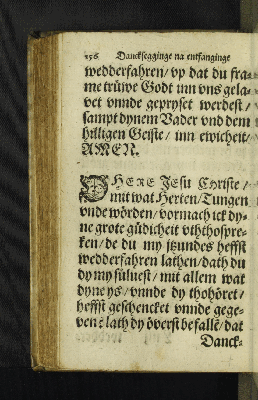 156 Dancksegginge na entfanginge
wedderfahren/ vp dat du fra-
me trüwe Godt inn vns gela-
vet vnnde gepryset werdest/
sampt dynem Vader vnd dem
hilligen Geiste/ inn ewicheit/
AMEN.
O HERE Jesu Christe/
mit wat Herten/ Tungen
vnde wörden/ vormach ick dy-
ne grote güdicheit vththospre-
ken/ de du my jtzundes heffst
wedderfahren lathen/ dath du
dy my süluest/ mit allem wat
dyne ys/ vnnde dy thohöret/
heffst geschencket vnnde gege-
ven: lath dy överst befallē/ dat
Danck-